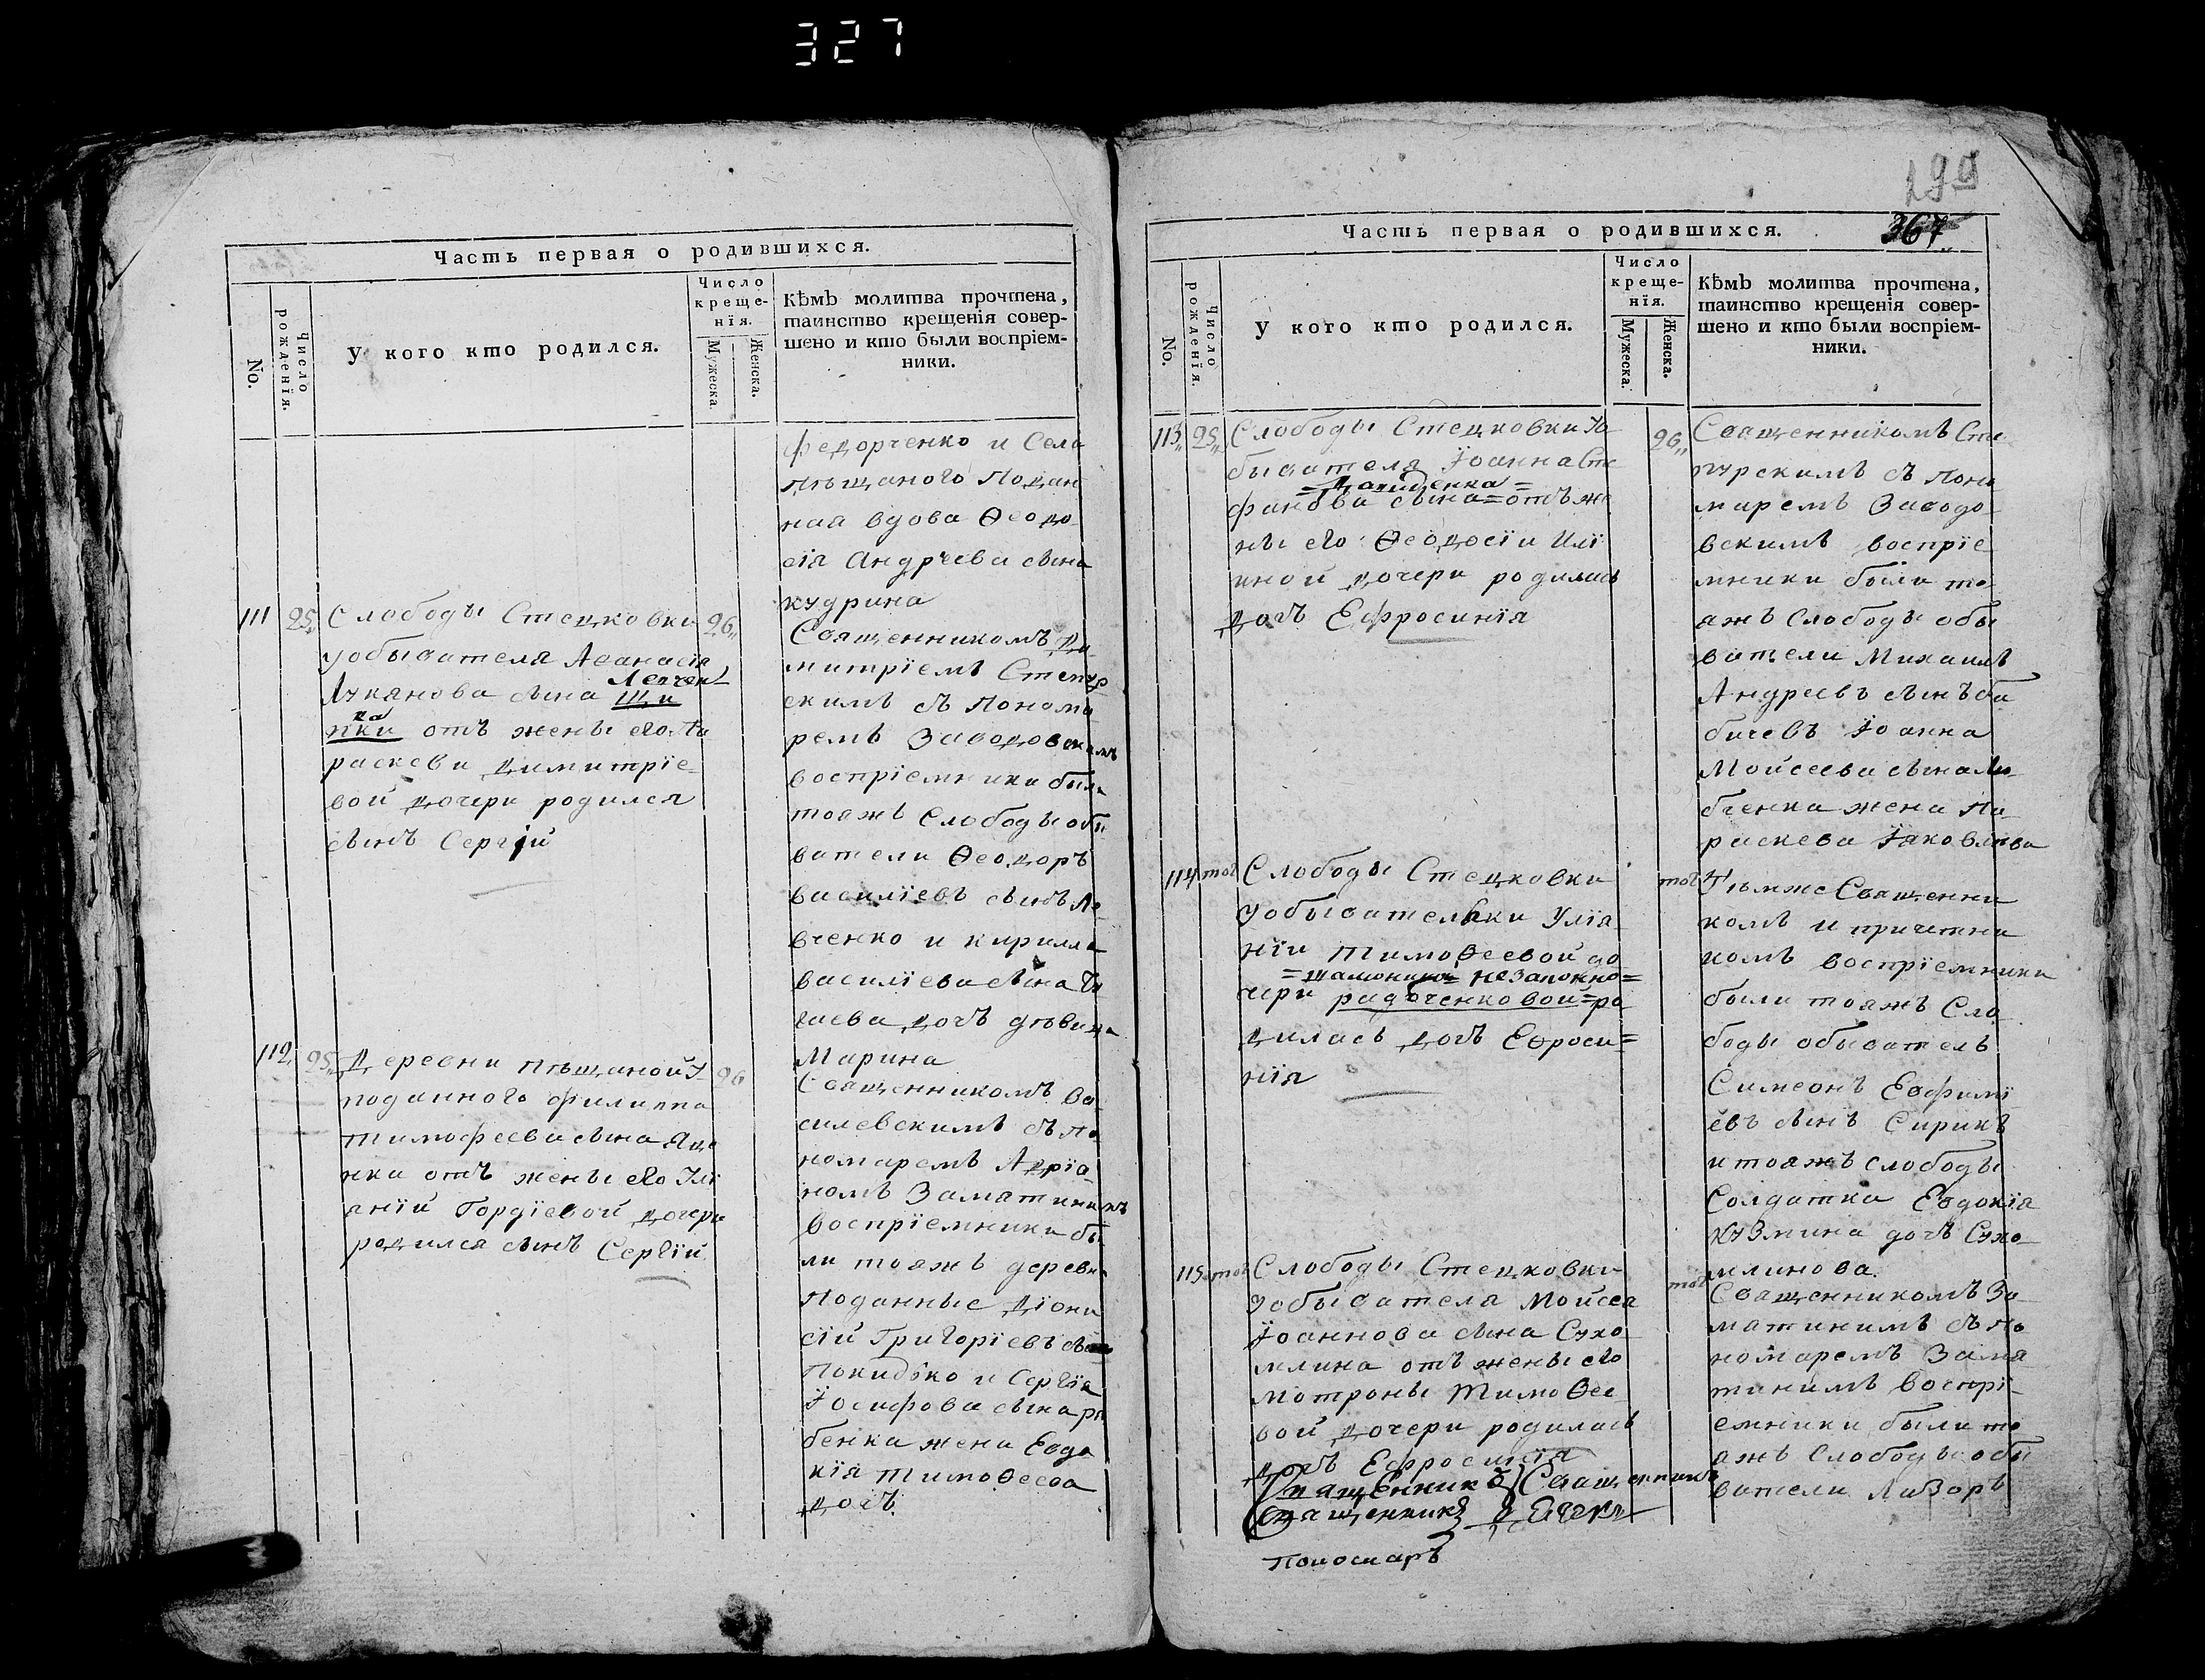 327
Часть первая о родившихся.
No.
Число рожденїя.
У кого кто родился.
Число крещенїя.
Мужеска.
Женска.
Кѣмъ молитва прочтена,
таинство крещенія совер-
шено и кто были воспріем-
ники.
федорченко и Села
пѣщаного Подан
ная вдова Ѳеодо
сія Андрѣева сына
кудрина
111 25 Слободы Стецковки 26
уобывателя Аѳанасія
Луканова сына Щи
Левчен
ка
пки отъ жены его Па
раскеви Димитріе
вой дочери родился
сынъ Сергїй
Священникомъ Ди
митріемъ Степур
скимъ съ Понома
ремъ Заводовскимъ
воспріемники были
тояжъ Слободы обы
ватели Ѳеодоръ
василіевъ сынъ Ле
вченко и кирилла
василіева сына
гаева дочь дѣвица
Марина
112 25 Деревни пѣщаной У 26
поданного филиппа
тимофеева сына Яце
нка отъ жены его Улі
яній Гордіевой дочери
родился сынъ Сергїй
Священникомъ Ва
силевскимъ съ по
номаремъ Адріа
номъ Заматинимъ
воспріемники бы
ли тояжъ деревни
Поданные Діони
сій Григоріевъ сынъ
Покидко и Сергїя
Іосифова сына ря
бенка жена Евдо
кія тимоѲеева
дочь
199
367
Часть первая о родившихся.
No.
Число рожденїя.
У кого кто родился.
Число крещенїя.
Мужеска.
Женска.
Кѣмъ молитва прочтена,
таинство крещенія совер-
шено и кто были воспріем-
ники.
113 25 Слободы Стецковки Уо 26
бывателя Іоанна Сте
=Давиденка=
фанова сына=отъ же
ны его Ѳеодосіи Илї
иной дочери родилась
дочь Ефросинїя
Священникомъ Сте
пурскимъ съ Поно
маремъ Заводо
вскимъ воспріе
мники были то
яжъ Слободы обы
ватели Михаилъ
Андреевъ сынъ ба
бичевъ Іоанна
Мойсеева сына Ли
бченка жена Па
раскева Іаковлева
114 тог Слободы Стецковки тог
уобывательки Улія
ніи тимоѲеевой до
незаконно=
чери радченковой=ро
дилась дочь Ефроси=
нїя
Тѣмже Священни
комъ и причетни
комъ воспріемники
были тояжъ Сло
боды обыватель
Симеонъ Евфимі
евъ сынъ Сирикъ
и тояжъ слободы
Солдатка Евдокія
кузмина дочь Сухо
млинова.
115 тог Слободы Стецковки тог
уобывателя Мойсея
Іоаннова сына Сухо
млина отъ жены его
мотроны ТимоѲее
вой дочери родилась
дочь Ефросинїя
Священникомъ За
матинимъ съ по
номаремъ Зама
тинимъ воспрі
емники были то
яжъ Слободы обы
ватели Лазоръ
Священникъ Священникъ
Священникъ
Пономарь